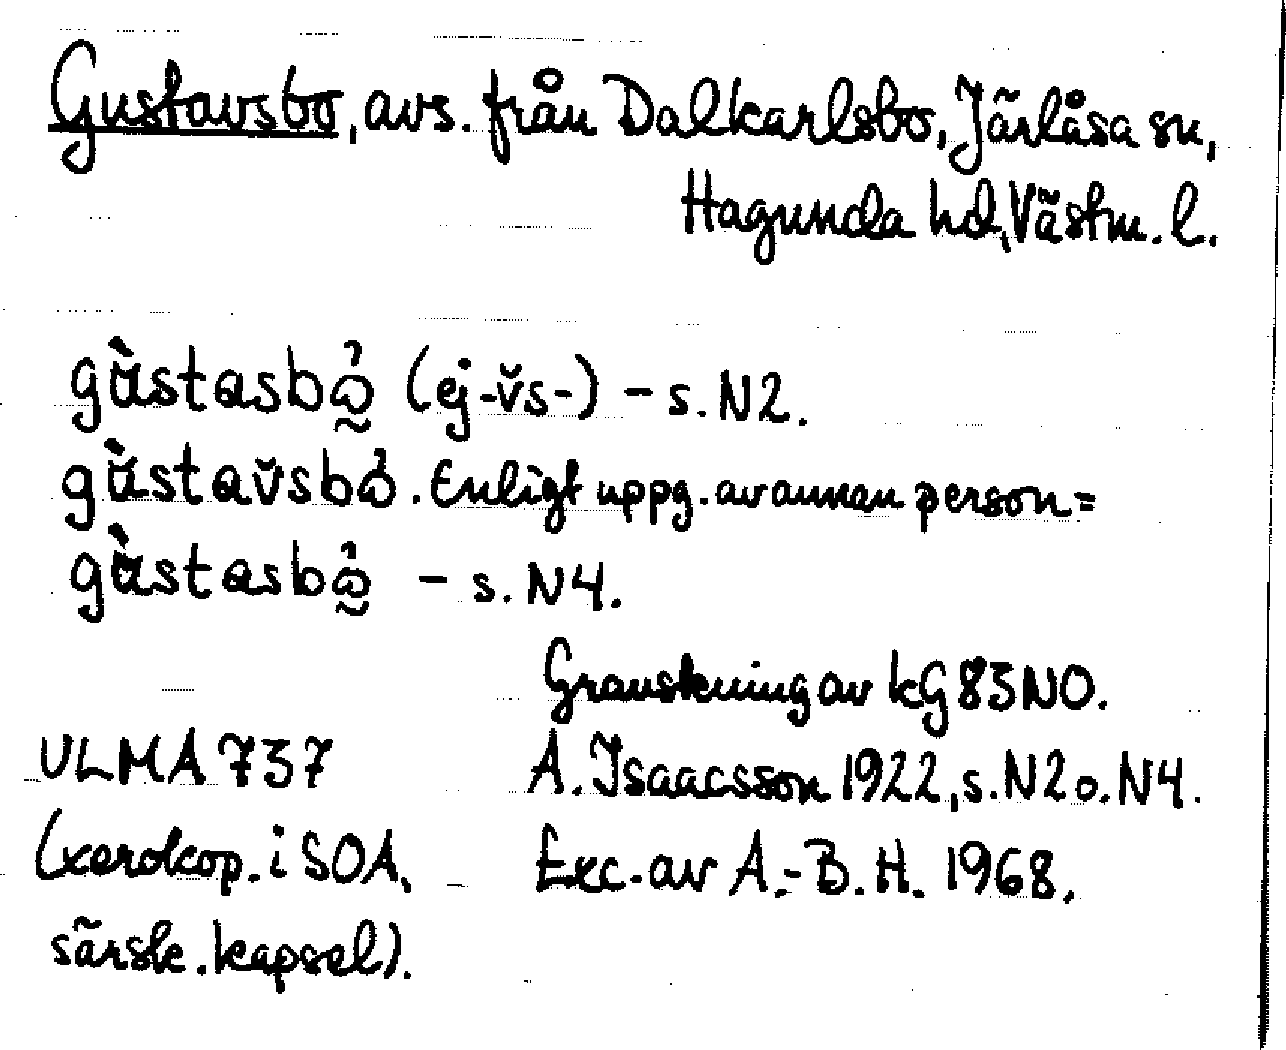 Gustavsbo, avs. från Dalkarlsbo, Järlåsa sn,
Hagunda hd, Västm. l.
gù̀stasbω̰̉ (ej -v̌s-) – s. N2.
gù̀stav̌sbω̉. Enligt uppg. av annan person =
gù̀stasbω̰̉ – s. N4.
Granskning av kG 83 NO.
ULMA 737 A. Isaacsson 1922, s. N2 o. N4.
(xerokop. i SOA, Exc. av A.-B. H. 1968.
särsk. kapsel).